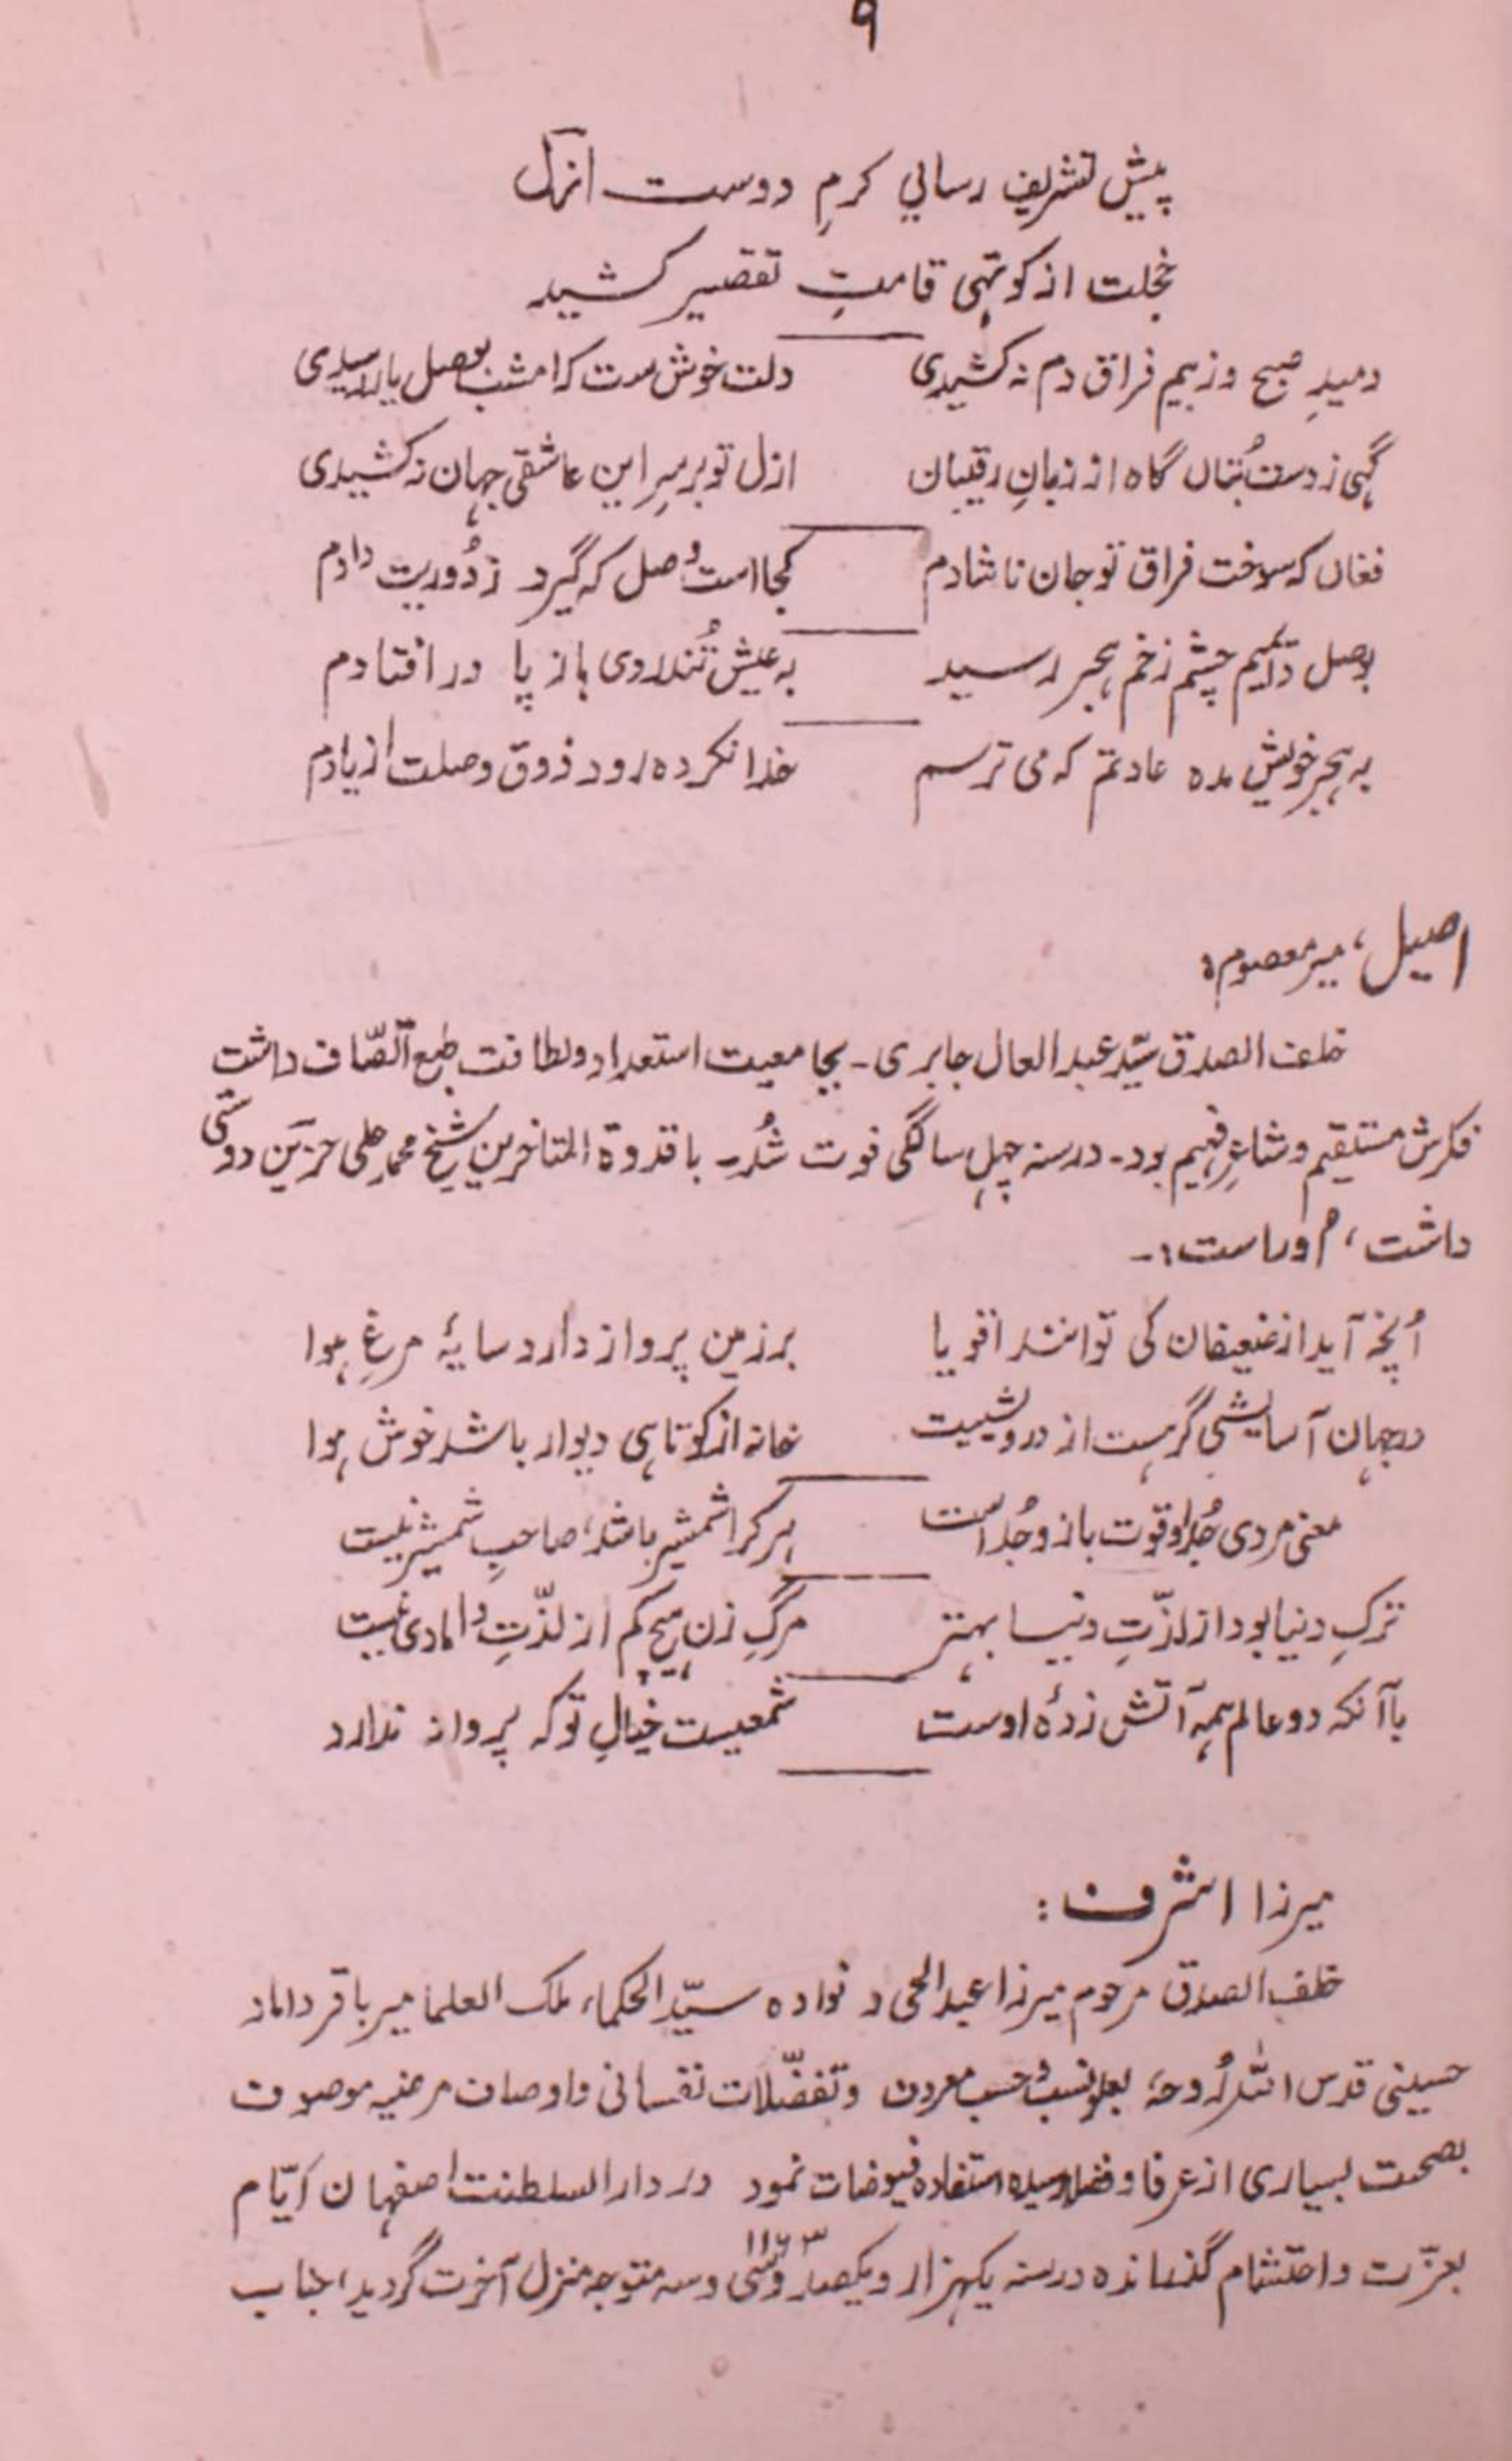 ۹
پیش تشریف رسایِ کرمِ دوست ازل
خجلت از کوتهی قامتِ تقصیر کشید
دمیدِ صبح و ز بیم فراق دم نه کشیدی دلت خوش ست که امشب بوصل یار رسیدی
گهی ز دست بُتاں گاه از زبانِ رقیبان ازل تو بر سرِ این عاشقی جهان نه کشیدی
فغاں که سوخت فراق تو جان ناشادم کجا است وصل که گیرد ز دُوریت دادم
بوصل دائیم چشم زخم هجر رسید به عیش تُند روی باز پا در افتادم
به هجر خویش مده عادتم که می ترسم خدا نکرده رود ذوق وصلت از یادم
اصیل، میر معصوم:
خلف الصدق سیّد عبد العال جابری۔ بجامعیت استعداد و لطافت طبع اتّصاف داشت
فکرش مستقیم و شاعرِ فهیم بود۔ در سنه چهل سالگی فوت شُد۔ با قدوة المتاخرین شیخ محمد علی حزین دوستی
داشت، اوراست:۔
اُنچه آید از ضعیفان کی توانند اقویا بر زمین پرواز دارد سایهٔ مرغِ هوا
در جهان آسایشی گر هست از درویشیست خانه از کوتاهی دیوار باشد خوش هوا
معنی مردی جُدا و قوت بازو جُداست هر کرا شمشیر باشد، صاحبِ شمشیر نیست
ترکِ دنیا بود از لذّتِ دنیا بهتر مرگِ زن هیچ کم از لذّتِ دامادی نیست
با آنکه دو عالم همه آتش زدهٔ اوست شمعیست خیالِ تو که پرواز ندارد
میرزا اشرف:
خلف الصدق مرحوم میرزا عبدالحی و نواده سیّد الحکماء، ملک العلما میر باقر داماد
حسینی قدس الله رُوحهٗ بعلو نسب و حسب معروف و تفضّلات نفسانی و اوصاف مرضیه موصوف
بصحبت بسیاری از عرفا و فضلا رسیده استفاده فیوضات نمود در دار السلطنت اصفهان ایّام
۱۱۶۳
بعزّت و احتشام گذرانده در سنه یکهزار و یکصد و سی و سه متوجه منزل آخرت گردید، جناب